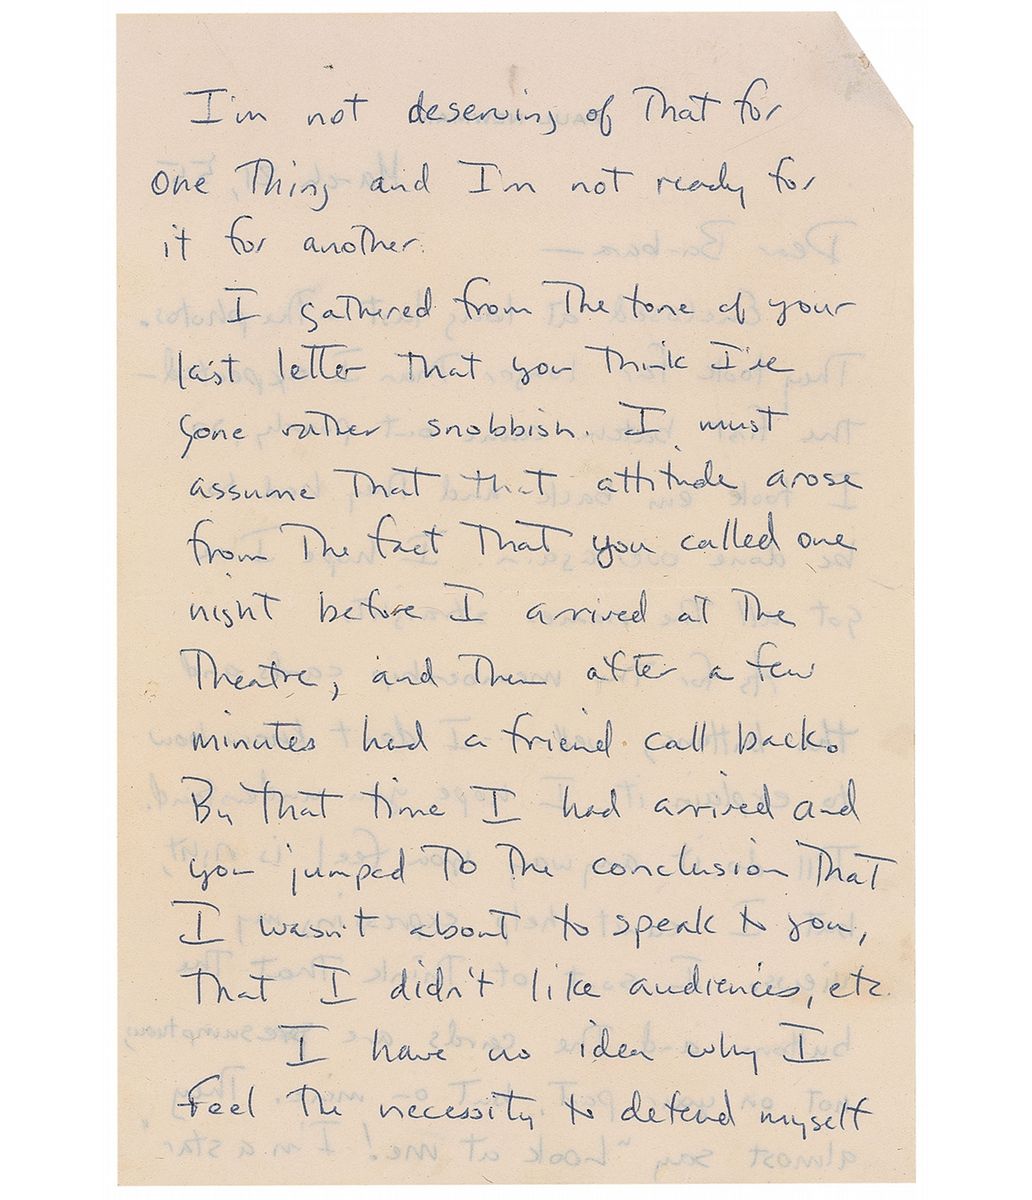 I'm not deserving of that for
one thing and I'm not ready for
it for another.
I gathered from the tone of your
last letter that you think I've
gone rather snobbish. I must
assume that that attitude arose
from the fact that you called one
night before I arrived at the
theatre, and then after a few
minutes had a friend call back.
By that time I had arrived and
you jumped to the conclusion that
I wasn't about to speak to you,
that I didn't like audiences, etc.
I have no idea why I
feel the necessity to defend myself